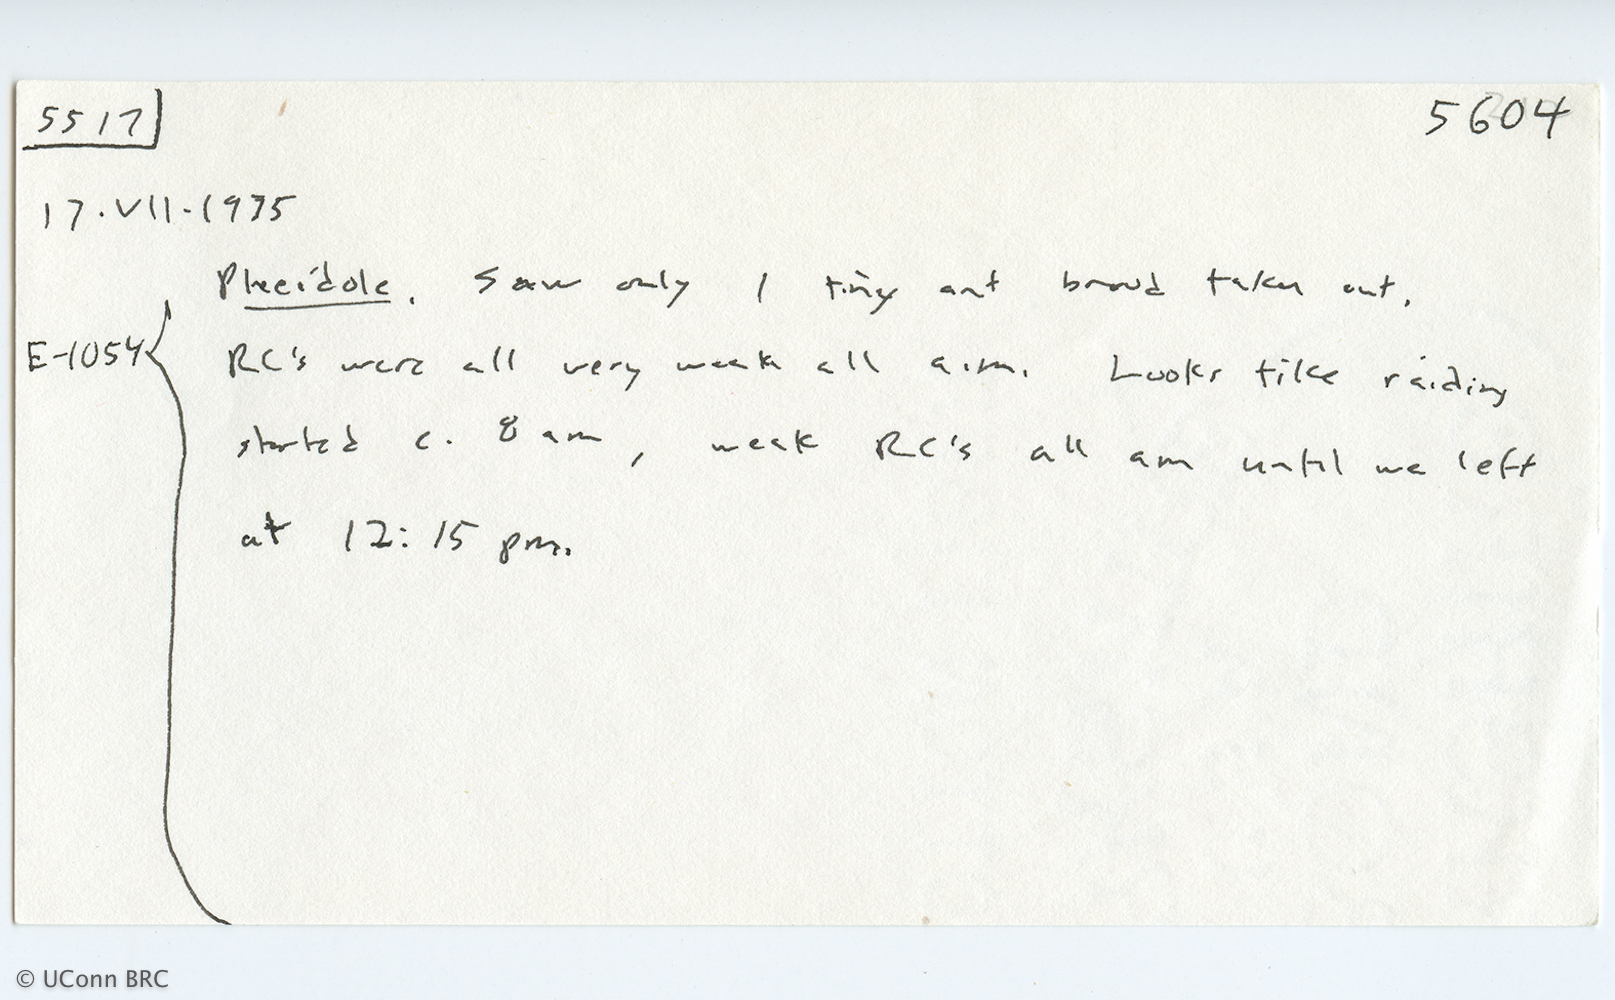 5517
5604
17.VII.1975
Pheidole. Saw only 1 tiny ant brood taken out.
E-1054
RC's were all very weak all a.m. Looks like raiding
started c. 8 am, weak RC's all am until we left
at 12:15 pm.
© UConn BRC